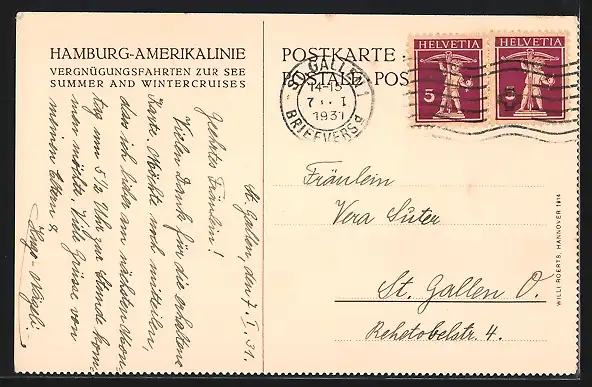 HAMBURG-AMERIKALINIE
VERGNÜGUNGSFAHRTEN ZUR SEE
SUMMER AND WINTERCRUISES
POSTKARTE
POSTALE POS
HELVETIA
5
HELVETIA
5
ST. GALLEN
14-15
7. I
1931
BRIEFVERSd.
St. Gallen, den 7. I. 31.
Geehrtes Fräulein!
Vielen Dank für die erhaltene
Karte. Möchte noch mitteilen,
dass ich lieber am nächsten Mon-
tag um 5½ Uhr zur Stunde kom-
men möchte. Viele Grüsse von
meinen Eltern &
Hugo Nägeli.
Fräulein
Vera Suter
St. Gallen O.
Rehetobelstr. 4.
WILLI ROERTS, HANNOVER 1914